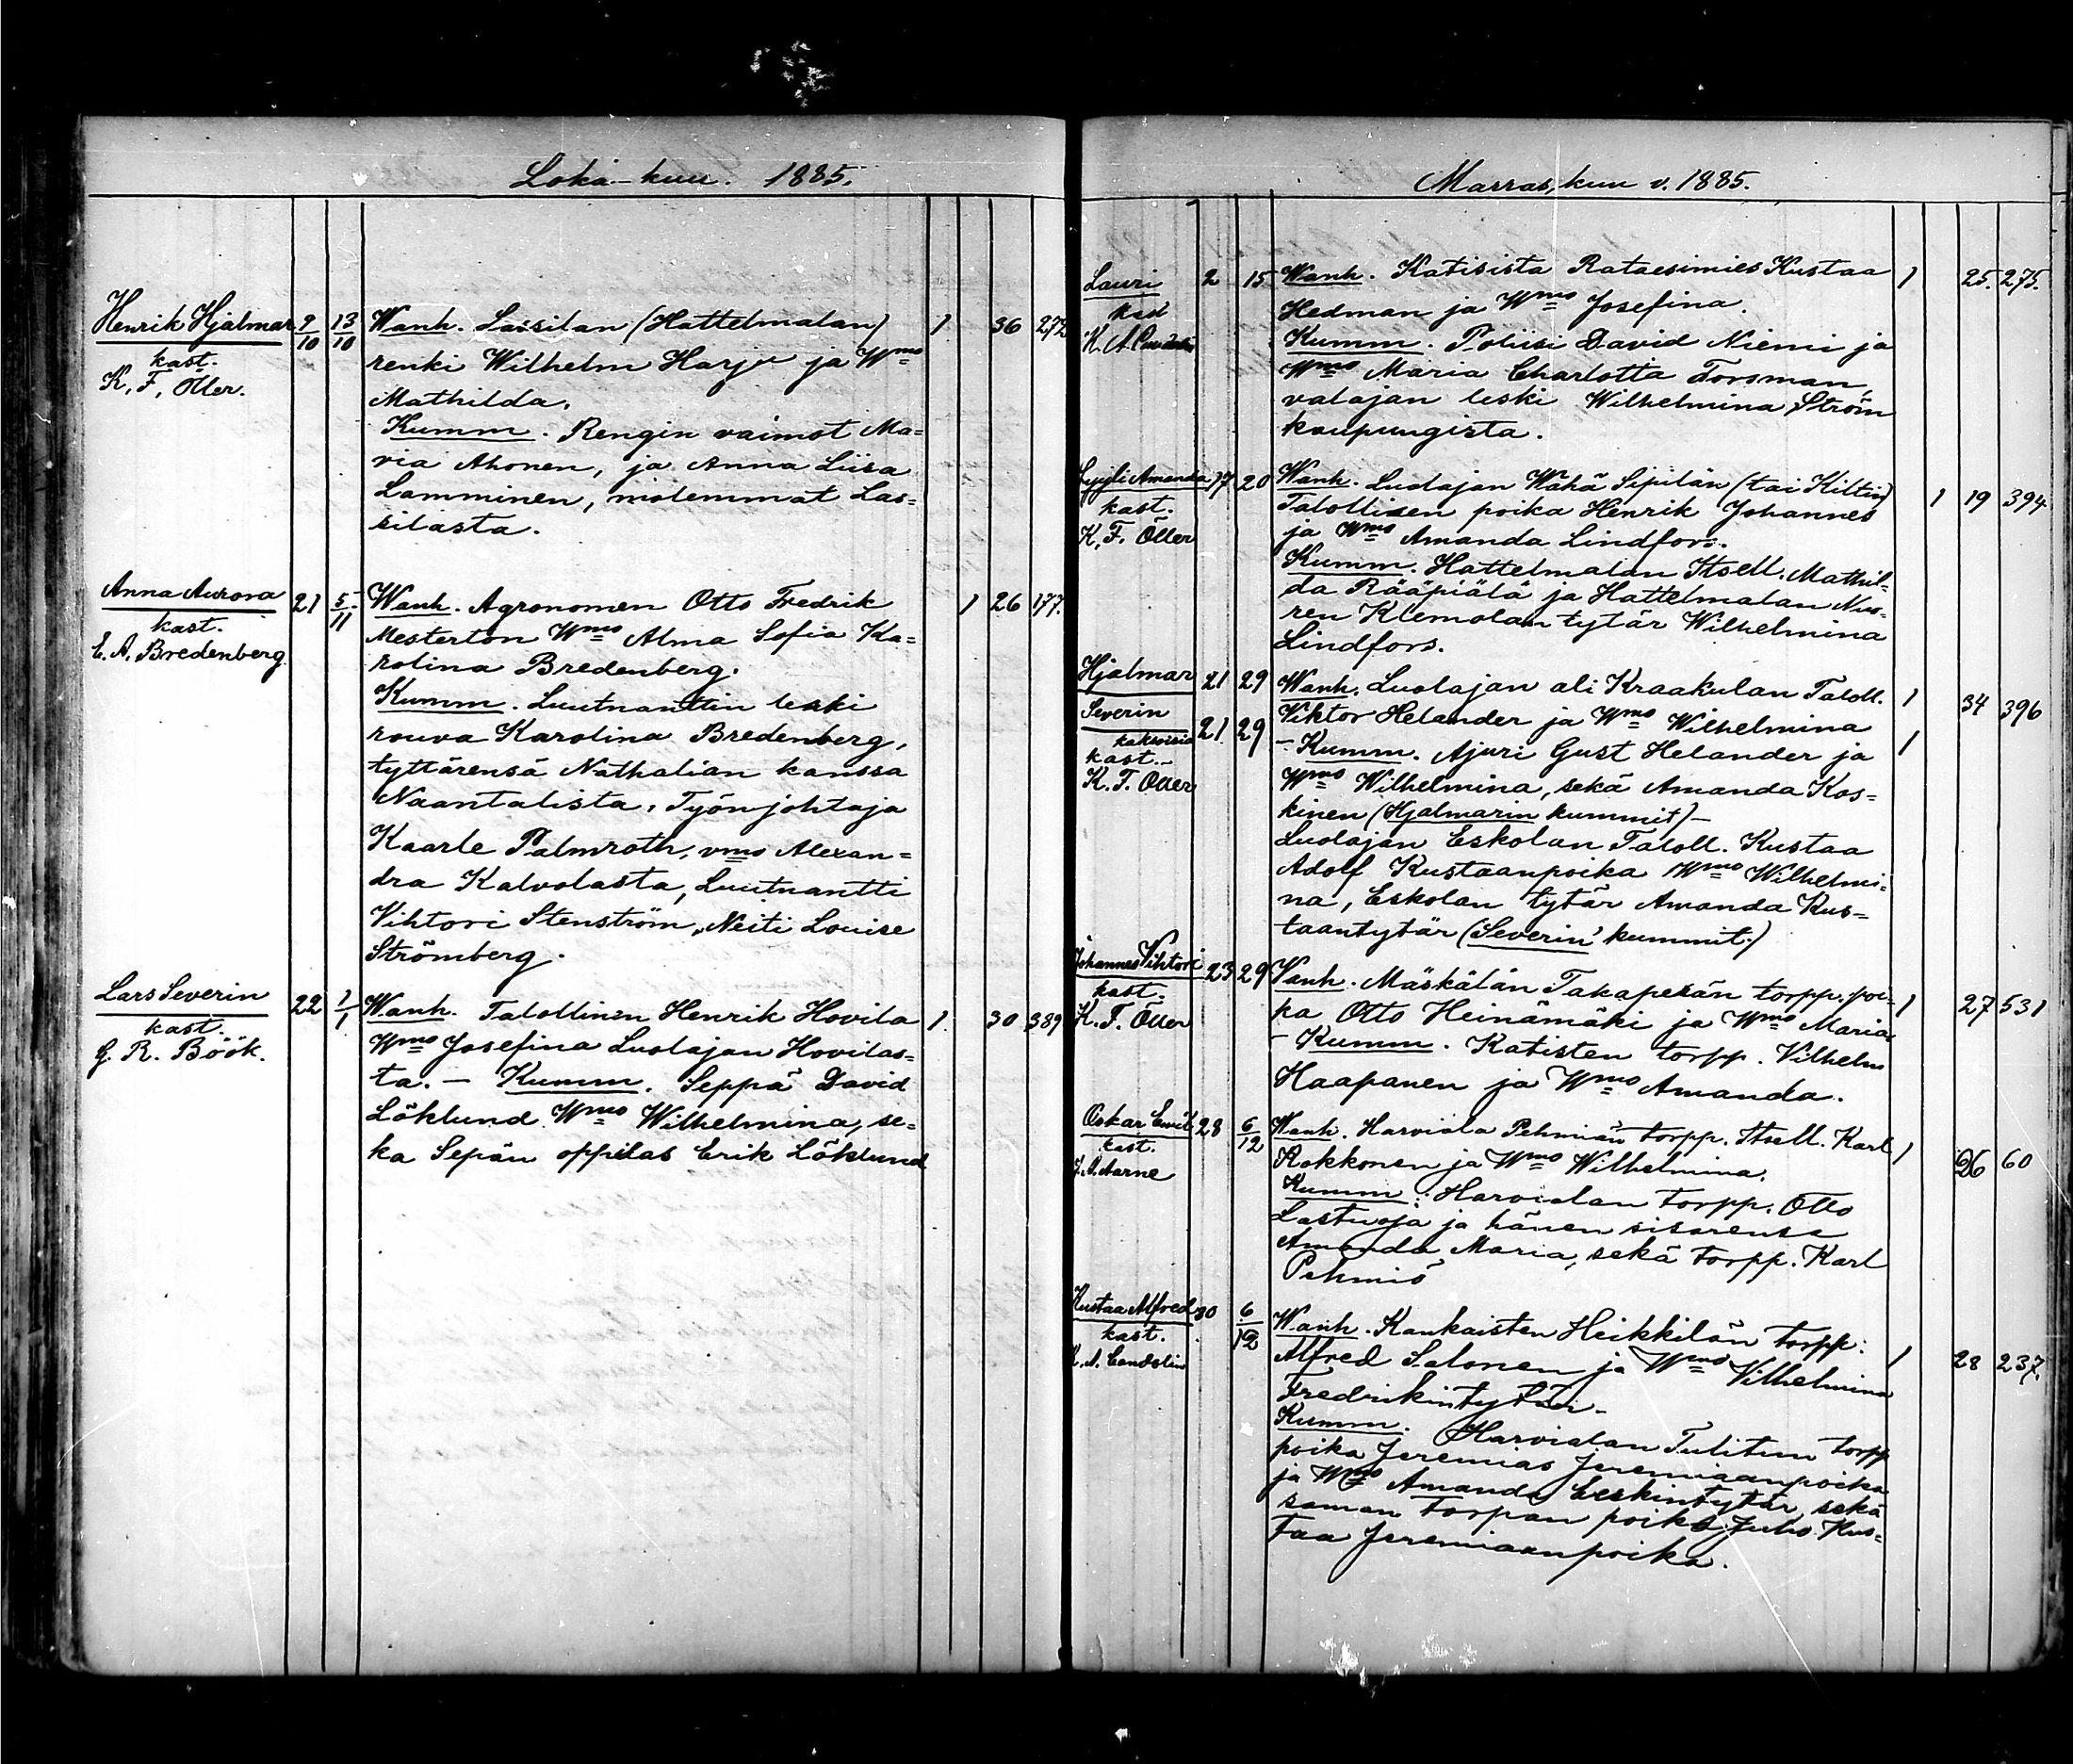 Loka-kuu. 1885.
Henrik Hjalmar 9/10 13/10 Wanh. Lassilan (Hattelmalan) 1 36 272
kast.
K. F. Öller.
renki Wilhelm Harju ja Wmo
Mathilda.
Kumm. Rengin vaimot Ma=
ria Ahonen, ja Anna Liisa
Lamminen, molemmat Las=
silasta.
Anna Aurora 21 5/11 Wanh. Agronomen Otto Fredrik 1 26 177.
kast.
E. A. Bredenberg
Mesterton Wmo Alma Sofia Ka=
rolina Bredenberg.
Kumm. Luutnanttin leski
rouva Karolina Bredenberg,
tyttärensä Nathalian kanssa
Naantalista, Työnjohtaja
Kaarle Palmroth, vmo Alexan=
dra Kalvolasta, Luutnantti
Vihtori Stenström, Neiti Louise
Strömberg.
Lars Severin 22 1/1 Wanh. Talollinen Henrik Hovila 1. 30 389
kast.
G. R. Böök.
Wmo Josefina Luolajan Hovilas=
ta. — Kumm. Seppä David
Löklund Wmo Wilhelmina, se=
kä Sepän oppilas Erik Löklund
Marras,kuu v. 1885.
Lauri 2 15 Wanh. Katisista Rataesimies Kustaa 1 25. 275.
kast
K. A.
Hedman ja Wmo Josefina.
Kumm. Poliisi David Niemi ja
Wmo Maria Charlotta Forsman,
valajan leski Wilhelmina Ström
kaupungista.
Lyyli Amanda 17 20 Wanh. Luolajan Wähä Sipilän (tai Kiltin) 1 19 394
kast.
K. F. Öller
Talollisen poika Henrik Johannes
ja Wmo Amanda Lindfors.
Kumm. Hattelmalan Itsell. Mathil=
da Rääpiälä ja Hattelmalan Nuo=
ren Klemolan tytär Wilhelmina
Lindfors.
Hjalmar 21 29 Wanh. Luolajan ali Kraakulan Taloll. 1 34 396
Severin 21 29 Viktor Helander ja Wmo Wilhelmina 1
kaksoisia
kast.
K. F. Öller
– Kumm. Ajuri Gust Helander ja
Wmo Wilhelmina, sekä Amanda Kos=
kinen (Hjalmarin kummit) –
Luolajan Eskolan Taloll. Kustaa
Adolf Kustaanpoika Wmo Wilhelmi=
na, Eskolan tytär Amanda Kus=
taantytär (Severin' kummit.)
Johannes Vihtori 23 29 Wanh. Mäskälän Takaperän torpp. poi= 1 27 531
kast.
K. F. Öller
ka Otto Heinämäki ja Wmo Maria
– Kumm. Katisten torpp. Vilhelm
Haapanen ja Wmo Amanda.
Oskar Emil 28 6/12 Wanh. Harviala Pehmiän torpp. Itsell. Karl 1 26 60
kast.
Aarne
Rokkonen ja Wmo Wilhelmina.
Kumm: Harvialan torpp. Otto
Lastuoja ja hänen sisarensa
Amanda Maria, sekä torpp. Karl
Pehmiö
Kustaa Alfred 30 6/12 Wanh. Kankaisten Heikkilän torpp: 1 28 237.
kast.
K. A. Candolin
Alfred Salonen ja Wmo Vilhelmina
Fredrikintytär.
Kumm. Harvialan Tulitun torpp
poika Jeremias Jeremiaanpoika
ja Wmo Amanda Eerkintytär, sekä
saman torpan poika Juho Kus=
taa Jeremiaanpoika.